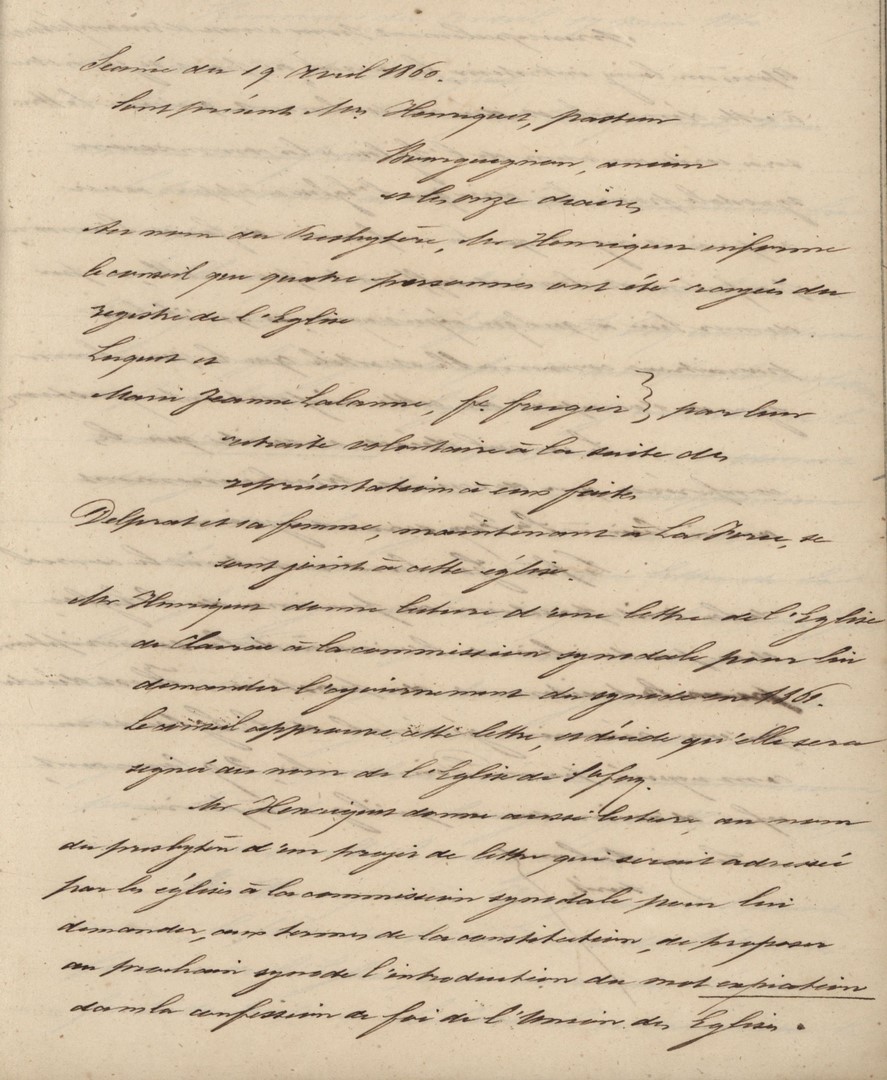 Séance du 19 Avril 1860.
Sont présents Mrs Henriquet, pasteur
Bourguignon, ancien
et les onze diacres
Au nom du Presbytère, Mr Henriquet informe
le conseil que quatre personnes ont été rayées du
registre de l'Eglise
et
Marie Jeanne Lalanne, fe } par leur
retraite volontaire à la suite des
représentations à eux faites
Delprat et sa femme, maintenant à La Force, se
sont joint à cette église.
Mr Henriquet donne lecture d'une lettre de l'Eglise
de Clairac à la commission synodale pour lui
demander l'ajournement du synode en 1861.
Le conseil approuve cette lettre, et décide qu'elle sera
signée au nom de l'Eglise de Ste foy.
Mr Henriquet donne aussi lecture, au nom
du presbytère d'un projet de lettre qui serait adressée
par les églises à la commission synodale pour lui
demander, aux termes de la constitution, de proposer
au prochain synode l'introduction du mot expiation
dans la confession de foi de l'Union des Eglises.